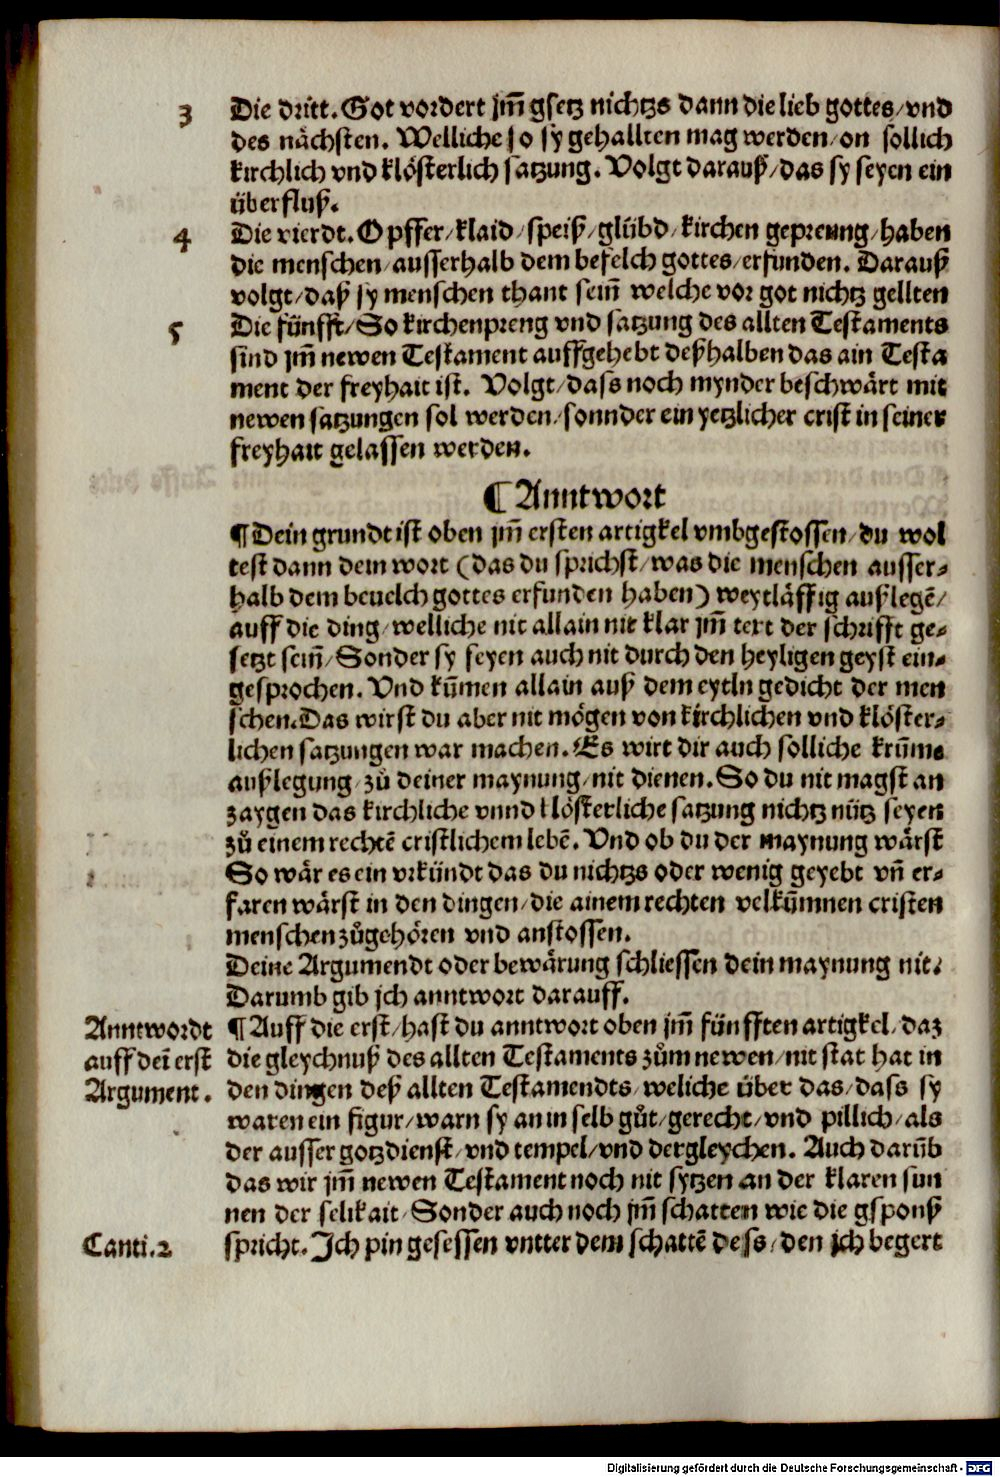 3 Die dritt. Got vordert jm̃ gsetz nichtzs dann die lieb gottes/vnd
des nächsten. Welliche so sy gehallten mag werden/on sollich
kirchlich vnd klösterlich satzung. Volgt darauß/das sy seyen ein
überfluß.
4 Die vierdt. Opffer/klaid/speiß/glübd/kirchen geprenng/haben
die menschen/ausserhalb dem befelch gottes/erfunden. Darauß
volgt/daß sy menschen thant seim̃ welche vor got nichtz gellten
5 Die fünfft/So kirchenpreng vnd satzung des allten Testaments
sind jm̃ newen Testament auffgehebt deßhalben das ain Testa
ment der freyhait ist. Volgt/dass noch mynder beschwärt mit
newen satzungen sol werden/sonnder ein yetzlicher crist in seiner
freyhait gelassen werden.
¶ Anntwort
¶ Dein grundt ist oben jm̃ ersten artigkel vmbgestossen/du wol
test dann dein wort (das du sprichst/was die menschen ausser-
halb dem beuelch gottes erfunden haben) weytläffig außlegẽ/
auff die ding/welliche nit allain nit klar jm̃ text der schrifft ge-
setzt sein̄/Sonder sy seyen auch nit durch den heyligen geyst ein-
gesprochen. Vnd kum̃en allain auß dem eytln gedicht der men
schen. Das wirst du aber nit mögen von kirchlichen vnd klöster-
lichen satzungen war machen. Es wirt dir auch solliche krum̃e
außlegung/zů deiner maynung/nit dienen. So du nit magst an
zaygen das kirchliche vnnd klösterliche satzung nichtz nütz seyen
zů einem rechtẽ cristlichem lebẽ. Vnd ob du der maynung wärst
So wär es ein vrkündt das du nichtzs oder wenig geyebt vñ er-
faren wärst in den dingen/die ainem rechten velkum̃nen cristen
menschen zůgehören vnd anstossen.
Deine Argumendt oder bewärung schliessen dein maynung nit.
Darumb gib jch anntwort darauff.
Anntwordt
auff dei erst
Argument.
¶ Auff die erst/hast du anntwort oben jm̃ fünfften artigkel/daz
die gleychnuß des allten Testaments zům newen/nit stat hat in
den dingen deß allten Testamendts/weliche über das/dass sy
waren ein figur/warn sy an in selb gůt/gerecht/vnd pillich/als
der ausser gotzdienst/vnd tempel/vnd dergleychen. Auch darũb
das wir jm̃ newen Testament noch nit sytzen an der klaren sun
nen der selikait/Sonder auch noch jm̃ schatten wie die gsponß
Canti.2
spricht. Ich pin gesessen vntter dem schattẽ dess/den jch begert
Digitalisierung gefördert durch die Deutsche Forschungsgemeinschaft - DFG